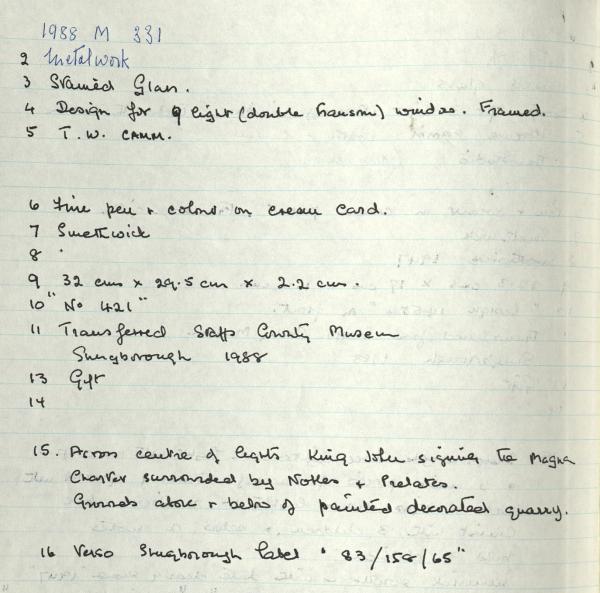 1988 M 331
2 Metalwork
3 Stained Glass.
4 Design for 9 light (double transom) window. Framed.
5 T.W. CAMM.
6 Fine pen & colour on cream card.
7 Smethwick
8 "
9 32 cms x 29.5 cm x 2.2 cm.
10 "No 421"
11 Transferred Staffs County Museum
Shugborough 1988
13 Gift
14
15. Across centre of lights King John signing the Magna
Charter surrounded by Nobles & Prelates.
Grounds above & below of painted decorated quarry.
16 Verso Shugborough label "83/158/65"